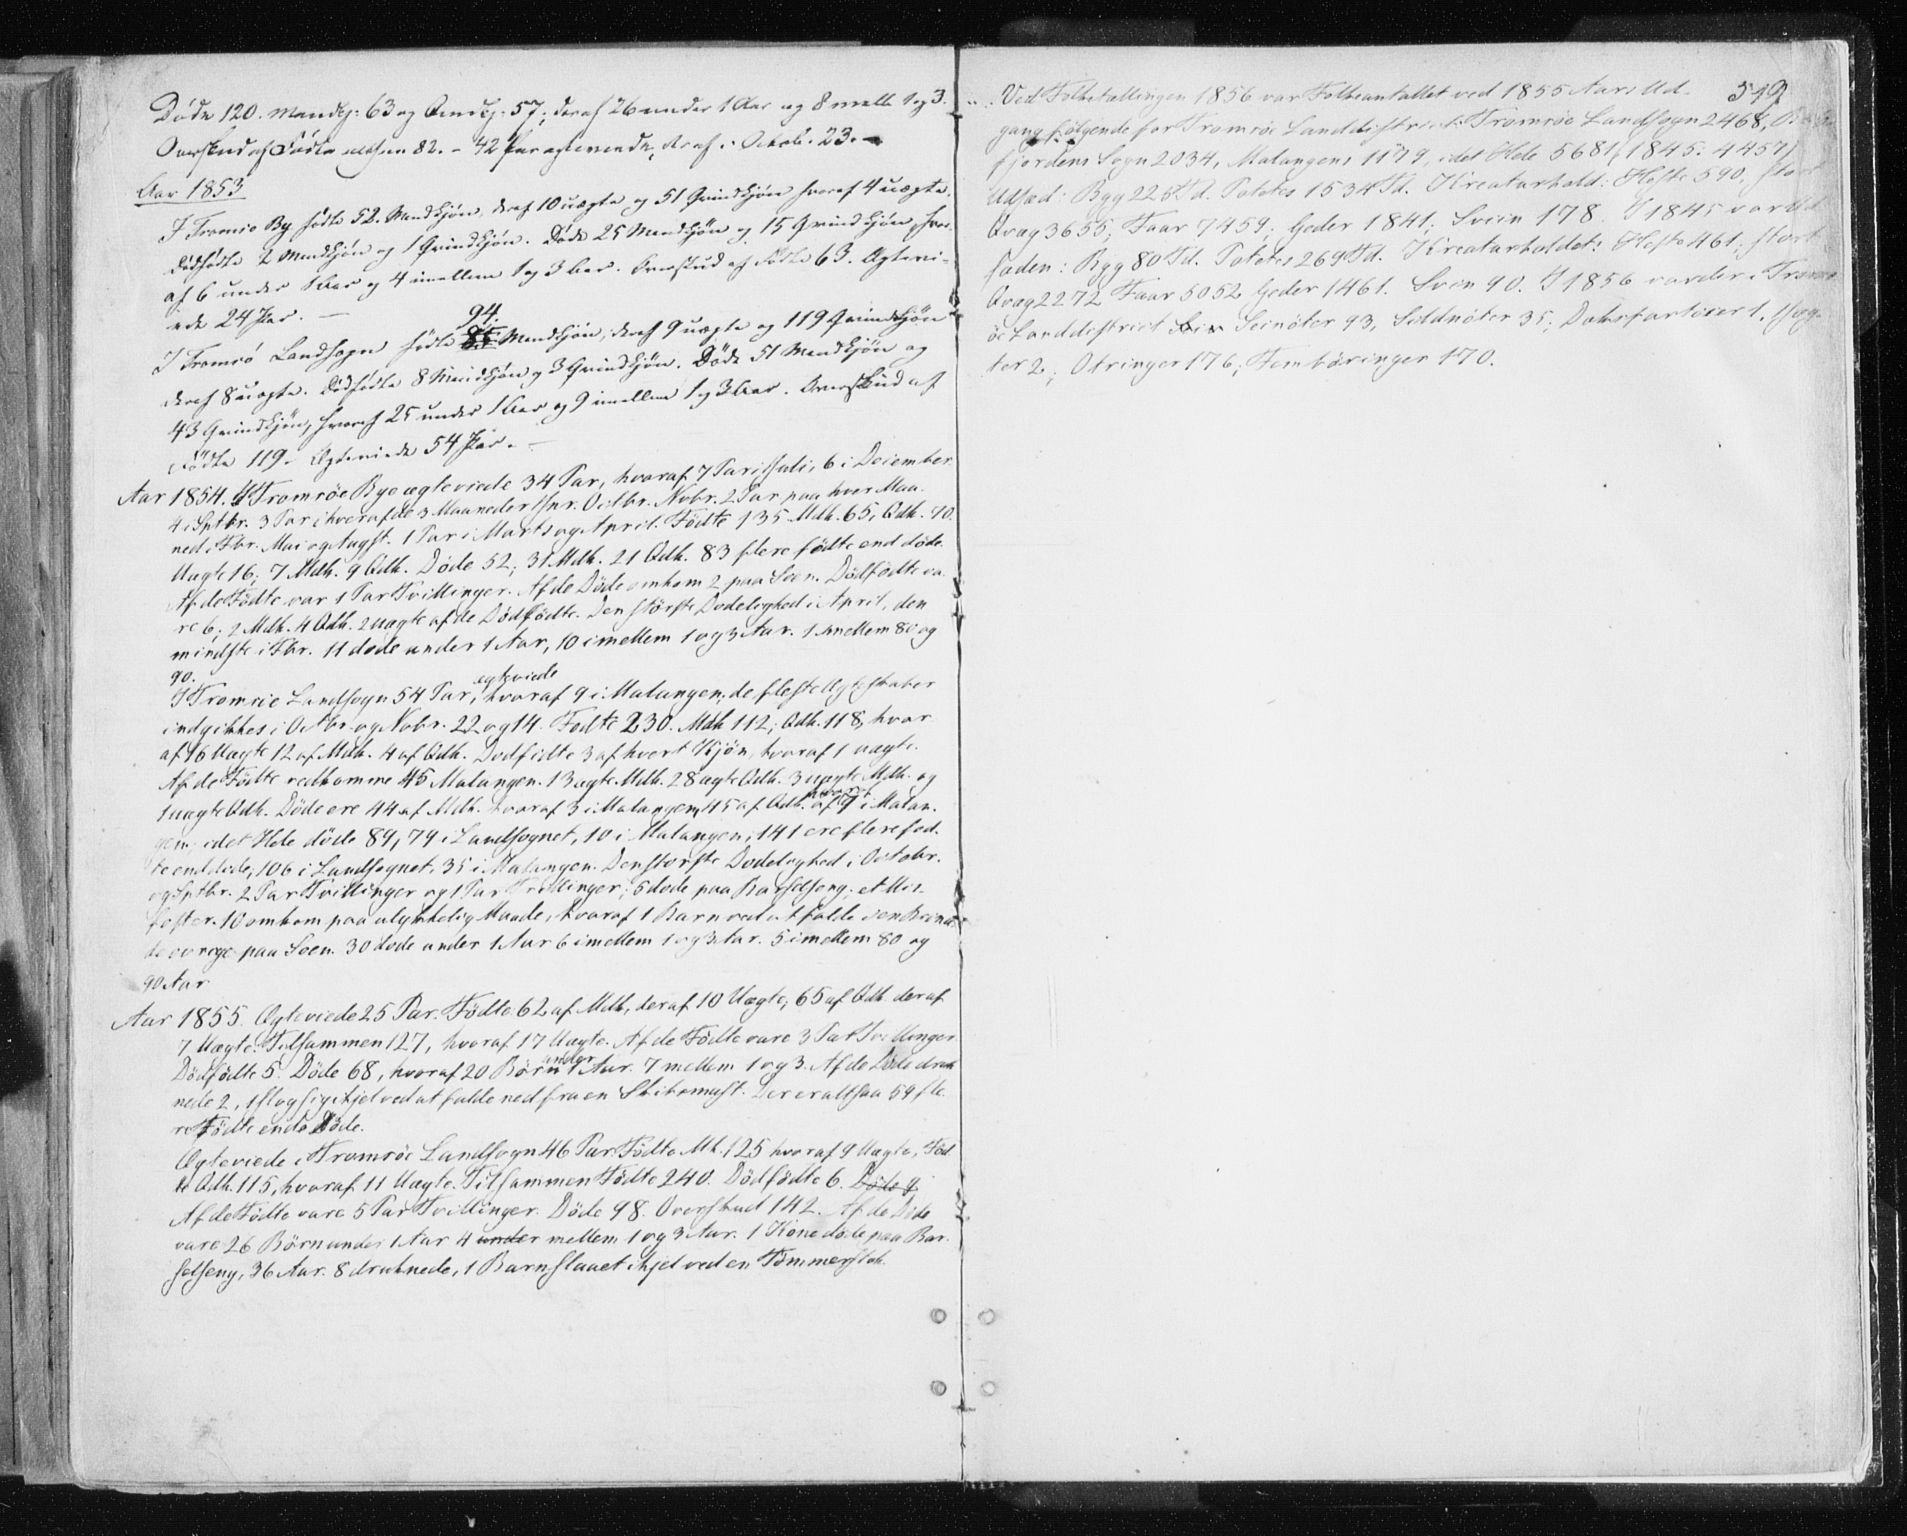 Døde 120. Mandkj: 63 og Qvindkj: 57; deraf 26 under 1 Aar og 8 mellem 1 og 3.
Overskud af Fødte altsaa 82. – 42 Par egteviede, deraf i Octob. 23. –
Aar 1853
I Tromsø By fødte 52 Mandkjøn, deraf 10 uægte og 51 Qvindkjøn hvoraf 4 uægte.
Dødfødte 2 Mandkjøn og 1 Qvindkjøn. Døde 25 Mandkjøn og 15 Qvindkjøn, hvor-
af 6 under 1 Aar og 4 imellem 1 og 3 Aar. Overskud af Fødte 63. Egtevi-
ede 24 Par. –
94.
I Tromsø Landsogn fødte Mandkjøn, deraf 9 uægte og 119 Qvindekjøn
deraf 8 uægte. Dødfødte 8 Mandkjøn og 3 Qvindkjøn. Døde 51 Mandkjøn og
43 Qvindkjøn, hvoraf 25 under 1 Aar og 9 imellem 1 og 3 Aar. Overskud af
Fødte 119 – Egteviede 54 Par. –
Aar 1854. I Tromsøe Bye egteviede 34 Par, hvoraf 7 Par i Juli, 6 i December
4 i Sptbr. 3 Par i hver af de 3 Maaneder Jnr. Octbr. Novbr. 2 Par paa hver Maa-
ned i Fbr. Mai og Augst. 1 Par i Marts og April. Fødte 135 Mdk. 65, Qdk. 70.
Uægte 16; 7 Mdk. 9 Qdk. Døde 52; 31 Mdk. 21 Qdk. 83 flere fødte end døde.
Af de Fødte var 1 Par Tvillinger. Af de Døde omkom 2 paa Søen. Dødfødte va-
re 6; 2 Mdk. 4 Qdk. 2 uægte af de Dødfødte. Den største Dødelighed i April, den
mindste i Fbr. 11 døde under 1 Aar, 10 imellem 1 og 3 Aar. 1 imellem 80 og
90.
egteviede
I Tromsøe Landsogn 54 Par, hvoraf 9 i Malangen; de fleste Egteskaber
indgikkes i Octbr. og Novbr. 22 og 14. Fødte 230. Mdk 112; Qdk. 118, hvor
af 16 Uægte 12 af Mdk. 4 af Qdk. Dødfødte 3 af hvert Kjøn, hvoraf 1 uægte.
Af de Fødte vedkomme 45 Malangen. 13 ægte Mdk. 28 ægte Qdk. 3 uægte Mdk. og
1 uægte Qdk. Døde ere 44 af Mdk. hvoraf 3 i Malangen, 45 af Qdk. hvoraf 7 i Malan-
gen; i det Hele døde 89, 79 i Landsognet, 10 i Malangen, 141 ere flere fød-
te end døde; 106 i Landsognet, 35 i Malangen. Den største Dødelighed i Octobr.
og Sptbr. 2 Par Tvillinger og 1 Par Trillinger; 5 døde paa Barselseng; et Mis-
foster. 10 omkom paa ulykkelig Maade, hvoraf 1 Barn ved at falde i en Brønd
de øvrige paa Søen. 30 døde under 1 Aar 6 imellem 1 og 3 Aar. 5 imellem 80 og
90 Aar
Aar 1855. Egteviede 25 Par. Fødte 62 af Mdk, deraf 10 Uægte; 65 af Qdk. deraf
7 Uægte. Tilsammen 127, hvoraf 17 Uægte. Af de Fødte vare 3 Par Tvillinger
Dødfødte 5. Døde 68, hvoraf 20 Børn under 1 Aar. 7 mellem 1 og 3. Af de Døde druk-
nede 2, 1 slog sig ihjel ved at falde ned fra en Skibsmast. Der er altsaa 59 fle-
re Fødte end Døde.
Egteviede i Tromsøe Landsogn 46 Par. Fødte Mk. 125 hvoraf 9 Uægte, Fød-
te Qdk. 115, hvoraf 11 Uægte. Tilsammen Fødte 240. Dødfødte 6. Døde 9
Af de Fødte vare 5 Par Tvillinger. Døde 98. Overskud 142. Af de Døde
vare 26 Børn under 1 Aar 4 under mellem 1 og 3 Aar. 1 Kone døde paa Bar-
selseng, 36 Aar. 8 druknede, 1 Barn slaaet ihjel ved en Tømmerstok.
549
Ved Folketællingen 1856 var Folkeantallet ved 1855 Aars Ud-
gang følgende for Tromsøe Landdistrict: Tromsøe Landsogn 2468,
fjordens Sogn 2034, Malangens 1179, i det Hele 5681 (1845: 4457)
Udsæd: Byg 226 Td. Potetes 1534 Td. Kreaturhold: Heste 590, stort
Qvæg 3655; Faar 7459; Geder 1841; Sviin 178. I 1845 var Ud-
sæden: Byg 80 Td. Potetes 269 Td. Kreaturholdet: Heste 461; stort
Qvæg 2272 Faar 5052 Geder 1461. Sviin 90. I 1856 var der i Troms-
øe Landdistrict Seinøter 93, Sildnøter 35; Dæksfartøier 1, Jæg-
ter 2; Otringer 176; Fembøringer 170.